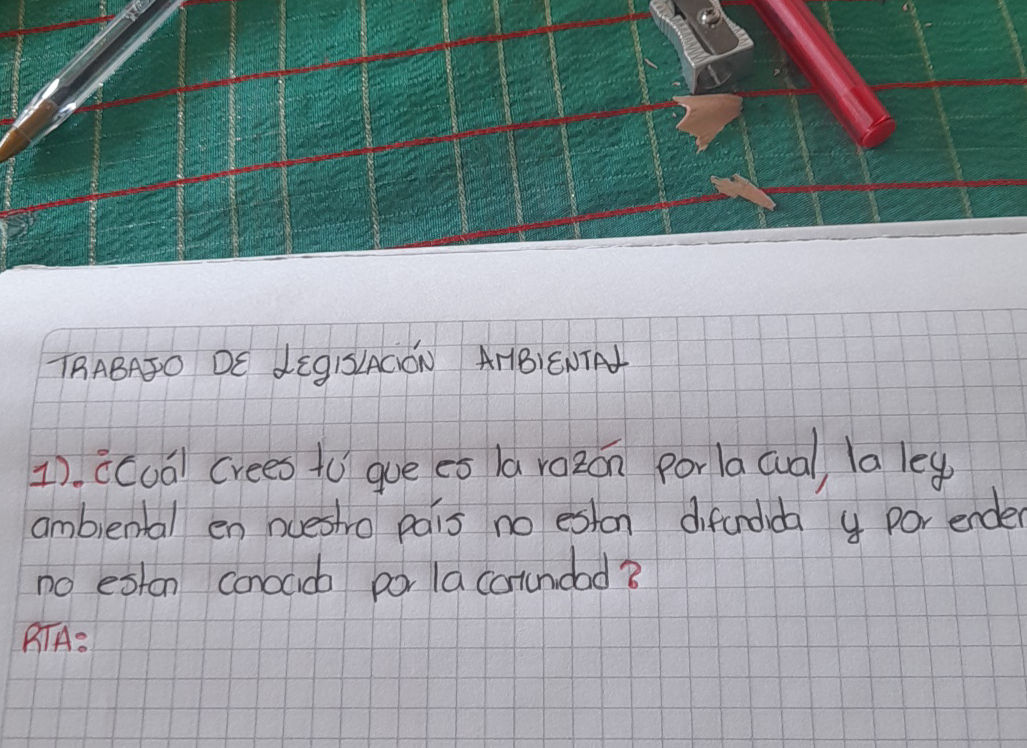 TRABAJO DE LEGISLACIÓN AMBIENTAL
1). ¿Cuál crees tú que es la razón por la cual, la ley
ambiental en nuestro país no estan difundida y por ender
no estan conocida por la comunidad?
RTA: